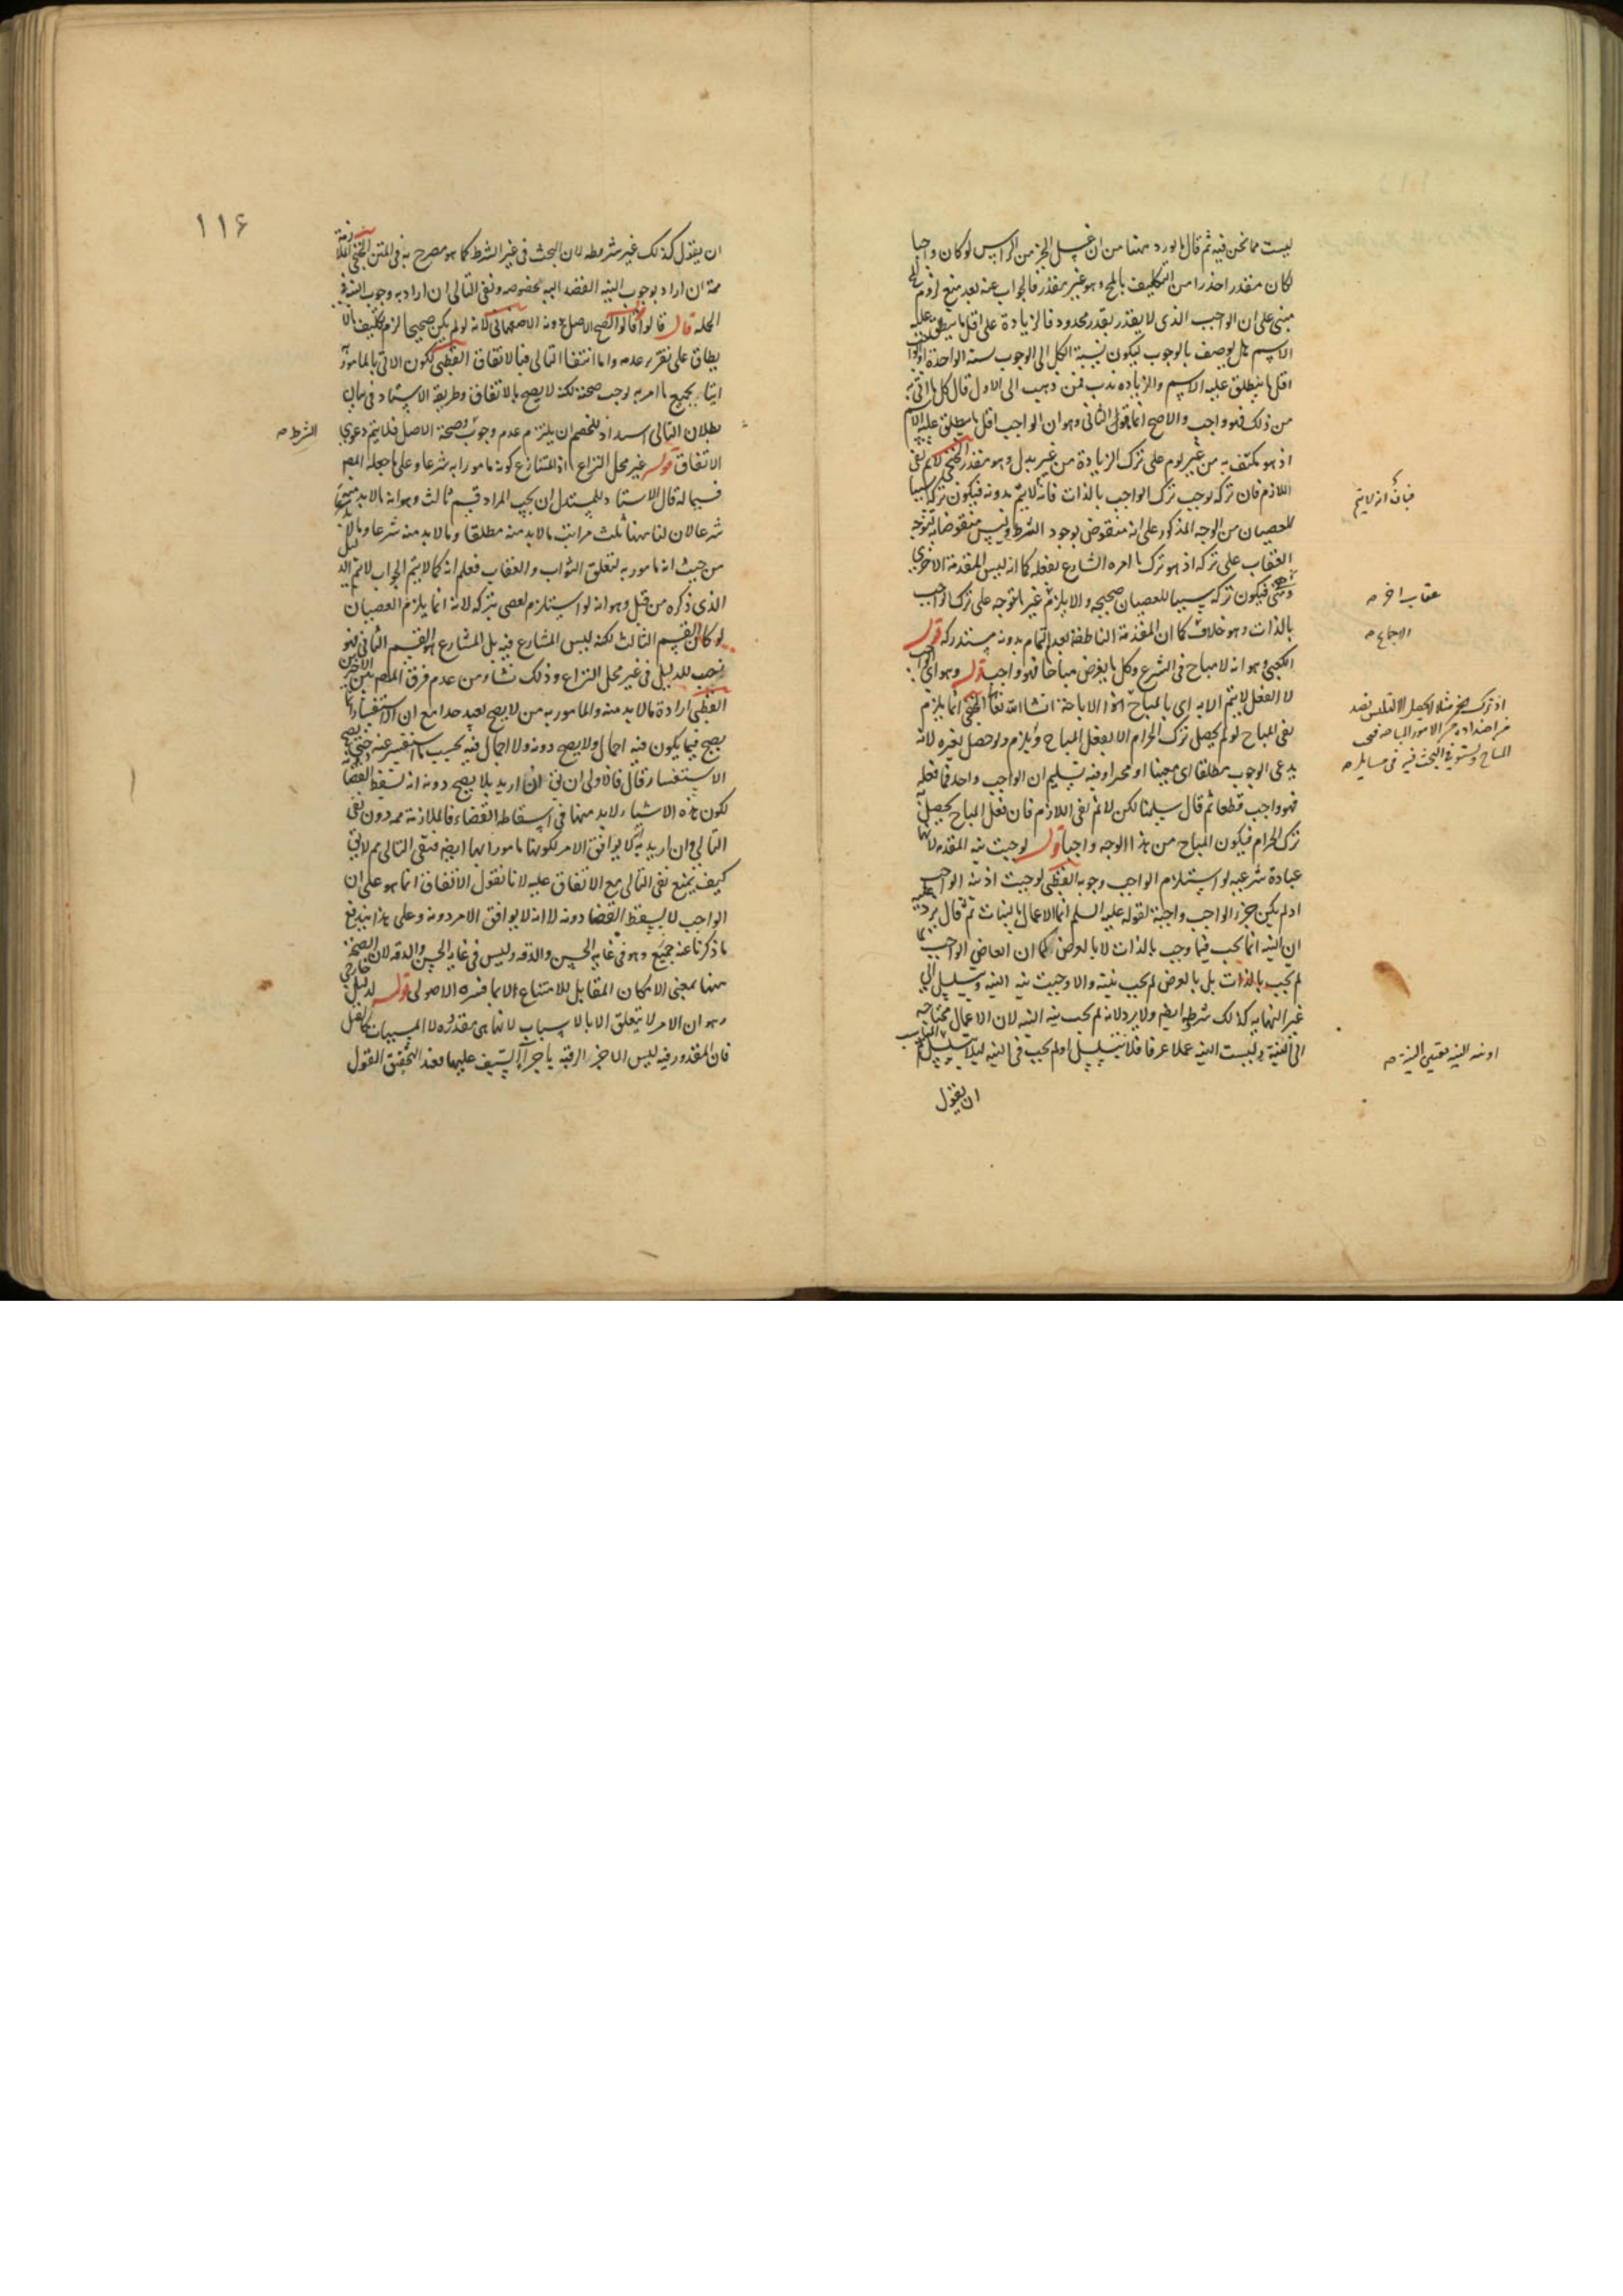 ليست مما نحن فيه ثم قال ما يورد ههنا من ان غسل الجزء من الراس لو كان واجبا
لكان مقدرا حذرا من التكليف بالمح وهو غير مقدر فالجواب عنه بعد منع لزوم
مبنى على ان الواجب الذى لا يقدر بقدر محدود فالزيادة على اقل ما ينطلق عليه
الاسم هل يوصف بالوجوب ليكون نسبة الكل الى الوجوب نسبة الواحدة او الواجب
اقل ما ينطلق عليه الاسم والزياده ندب فمن ذهب الى الاول قال كل ما اتى به
من ذلك فهو واجب والاصح انما هو الثانى وهو ان الواجب اقل ما ينطلق عليه الاسم
اذ هو مكتف به من غير لوم على ترك الزيادة من غير بدل وهو مقدر الخنجى لا نم نفى
اللازم فان تركه يوجب ترك الواجب بالذات فانه لا يتم بدونه فيكون تركه سببا
للعصيان من الوجه المذكور على انه منقوض بوجود الشرط وليس منقوضا به لتوجه
العقاب على تركه اذ هو ترك ما امره الشارع بفعله كما انه ليس المقدمة الاخرى
فيكون تركه سببا للعصيان صحيحه والا يلزم غير ما توجه على ترك الواجب
بالذات وهو خلاف كما ان المقدمة الناطقة بعدم التمام بدونه مستدركه قوله
الكعبى وهو انه لا مباح فى الشرع وكل ما يفرض مباحا فهو واجب قوله وهو اى الواجب
لا الفعل لا يتم الا به اى بالمباح اخر الاباحة انشا الله تعالى الخنجى انما يلزم
نفى المباح لو لم يحصل ترك الحرام الا بفعل المباح ولم يلزم ولو حصل بغيره لانه
يدعى الوجوب مطلقا اى معينا او مخيرا وفيه تسليم ان الواجب واحد فما فعله
فهو واجب قطعا ثم قال سلمنا لكن لا نم نفى اللازم فان فعل المباح يحصل به
ترك الحرام فيكون المباح من هذا الوجه واجبا قوله لوجبت نية المقدمه لانها
عبادة شرعيه لو استلزم الواجب وجوبه القطبى لوجبت اذ نية الواجب
اذ لم يكن جزء الواجب واجبة لقوله عليه السلم انما الاعمال بالنيات ثم قال يرد عليه
ان النيه انما يجب فيما وجب بالذات لا بالعرض كما ان العاصى الواجب
لم يجب بالذات بل بالعرض لم يجب نيته والا وجبت نيه النيه وتسلسل الى
غير النهايه كذلك شرطه ايضا ولا يرد لانه لم يجب نيه النيه لان الاعمال محتاجه
الى النية وليست النيه عملا عرفا فلا تتسلسل او لم يجب فى النيه ليلا يتسلسل
ان يقول
فبان انه لا يتم
عقاب اخر صح
الاجماع صح
المباح وستعرف البحث فيه فى مسايله صح
او نيه النيه بعينها النية صح
١١٤
ان يقول كذلك غير شرطه لان البحث فى غير الشرط كما هو مصرح به فى المتن الخنجى الملازمة
ممة ان اراد بوجوب النيه القصد اليه بخصوصه ونفى التالى ان اراد به وجوب النيه فى
الجمله قال قالوا قوله قالوا لصح الاصل دونه الاصفهانى لانه لو لم يكن صحيحا لزم تكليف ما لا
يطاق على تقرير عدمه واما انتفا التالى فبالاتفاق القطبى لكون الاتى بالمامور
اتيا بجميع ما امر به يوجب صحته لكنه لا يصح بالاتفاق وطريقة الاستاد فى بيان
بطلان التالى اسد اذ للخصم ان يلتزم عدم وجوب وصحة الاصل فلا يتم دعوى
الشرط صح
الاتفاق قوله غير محل النزاع اذ المتنازع كونه مامورا به شرعا وعلى ما جعله المص
قسيما له قال الاستاد للمستدل ان يجيب المراد قسم ثالث وهو انه ما لابد منه
شرعا لان لنا ههنا ثلث مراتب ما لابد منه مطلقا وما لابد منه شرعا وما لابد
من حيث انه مامور به لتعلق الثواب والعقاب فعلم انه كما لا يتم الجواب لا يتم الدليل
الذى ذكره من قبل وهو انه لو استلزم لعصى بتركه لانه انما يلزم العصيان
لو كان القسم الثالث لكنه ليس المشارع فيه بل المشارع هو القسم الثانى فهو
نصب للدليل فى غير محل النزاع وذلك نشاء من عدم فرق المص بين الاخيرين
القطبى ارادة ما لابد منه والمامور به من لا يصح بعيد جدا مع ان الاستفسار انما
يصح فيما يكون فيه اجمال ولا يصح دونه ولا اجمال فيه بحسب ما استفسر عنه حتى يصح
الاستفسار قال فالاولى ان يق ان اريد بلا يصح دونه انه لسقط القضا
لكون هذه الاشياء لابد منها فى اسقاطه القضاء فالملازمة ممه دون نفى
التالى وان اريد به انه لا يوافق الامر لكونها مامورا بها ايضا فنفى التالى مم لا يق
كيف تمنع نفى التالى مع الاتفاق عليه لانا نقول الاتفاق انما هو على ان
الواجب لا يسقط القضا دونه لا انه لا يوافق الامر دونه وعلى هذا يندفع
ما ذكرنا عنه جميع وهو فى غايه الحسن والدقه وليس فى غايه الحسن والدقه لان الصحة
ههنا بمعنى الامكان المقابل للامتناع لا بما فسره الاصولى قوله لدليل خارجى
وهو ان الامر لا يتعلق الا بالاسباب لانها هى مقدوره لا المسببات كالقتل
فان المقدور فيه ليس الا حز الرقبة باجراء السيف عليها فعند التحقيق القول